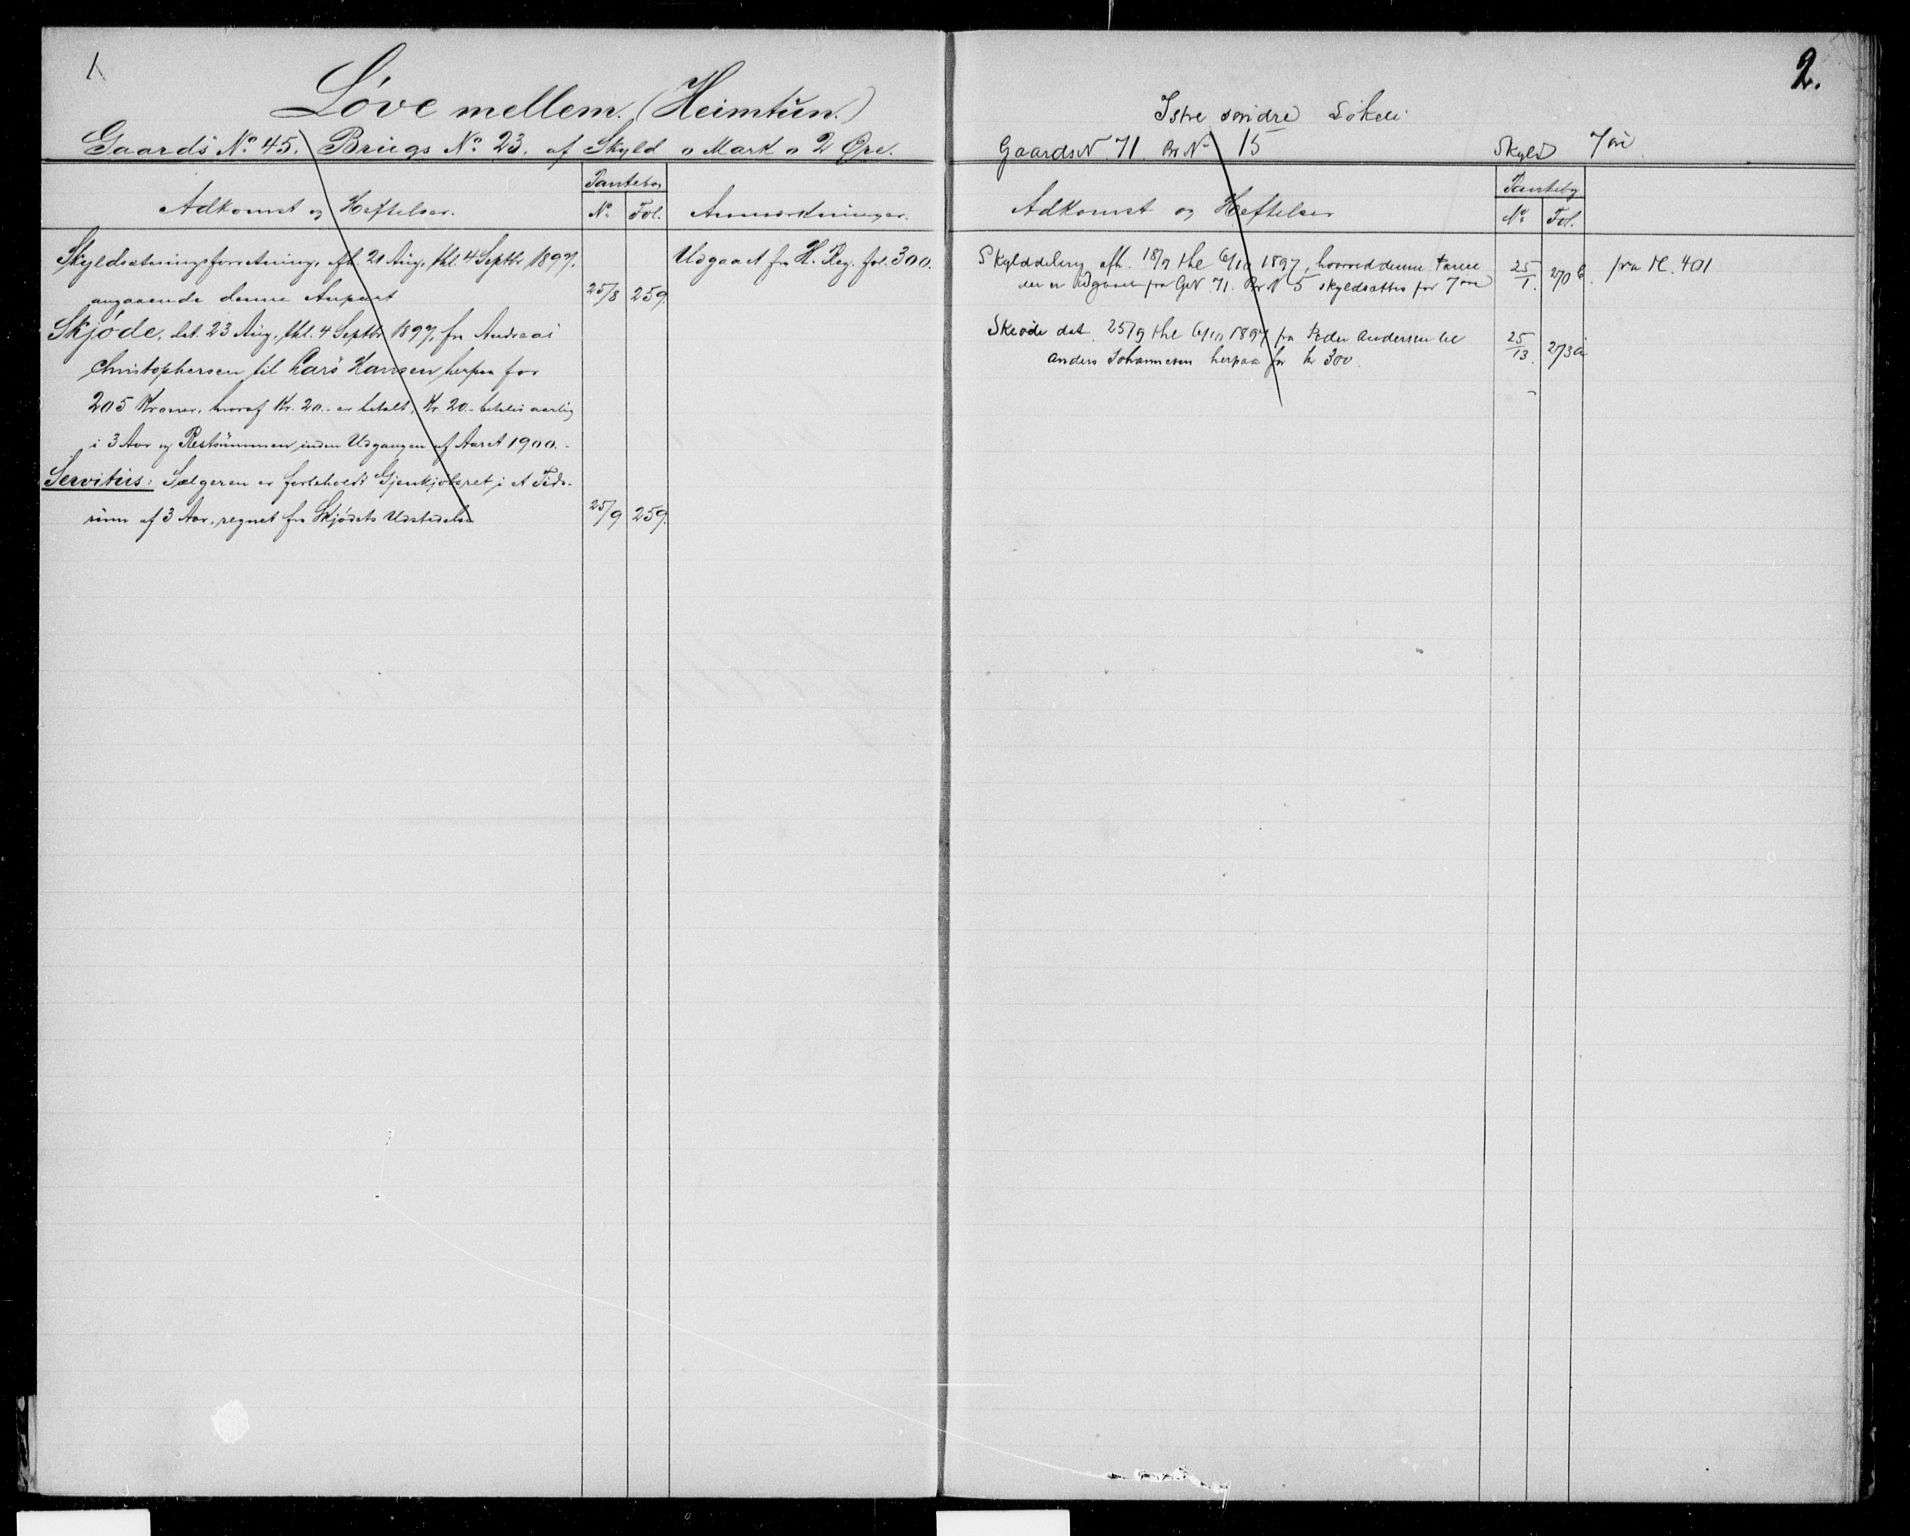 1
Løve mellem. (Heimtun.)
Gaards No 45. Brugs No 23. af Skyld " Mark " 2 Øre.
Adkomst og Heftelser.
Pantebog
No. Fol.
Anmærkninger.
Skyldsætningsforretning, afh. 21 Aug., thl. 4 Septbr 1897,
angaaende denne Anpart
25/8 259
Udgaaet fra H. Reg. fol. 300.
Skjøde, dat. 23 Aug., thl. 4 Septbr 1897, fra Andreas
Christophersen til Lars Hansen herpaa for
205 Kroner, hvoraf Kr. 20.- er betalt, Kr 20.- betales aarlig
i 3 Aar og Restsummen inden Udgangen af Aaret 1900.-
Servituts: Sælgeren er forbeholdt Gjenkjøbsret i et Tids-
rum af 3 Aar, regnet fra Skjødets Udstedelse
25/9 259.
2.
Istre søndre
Gaards N 71. Br No 15 Skyld 7 øre
Adkomst og Heftelser
Pantebog
No Fol.
Skylddeling afh. 18/9 thl 6/10 1897, hvorved denne Parcel
der er Udgaaet fra GN 71. Br N 5 skyldsættes for 7 øre
25/1. 270 b.
fra fl. 401
Skøde dat. 25/9 thl 6/10 1897 fra Peder Andersen til
Anders Johannesen herpaa for kr 300.
25/13. 273 a